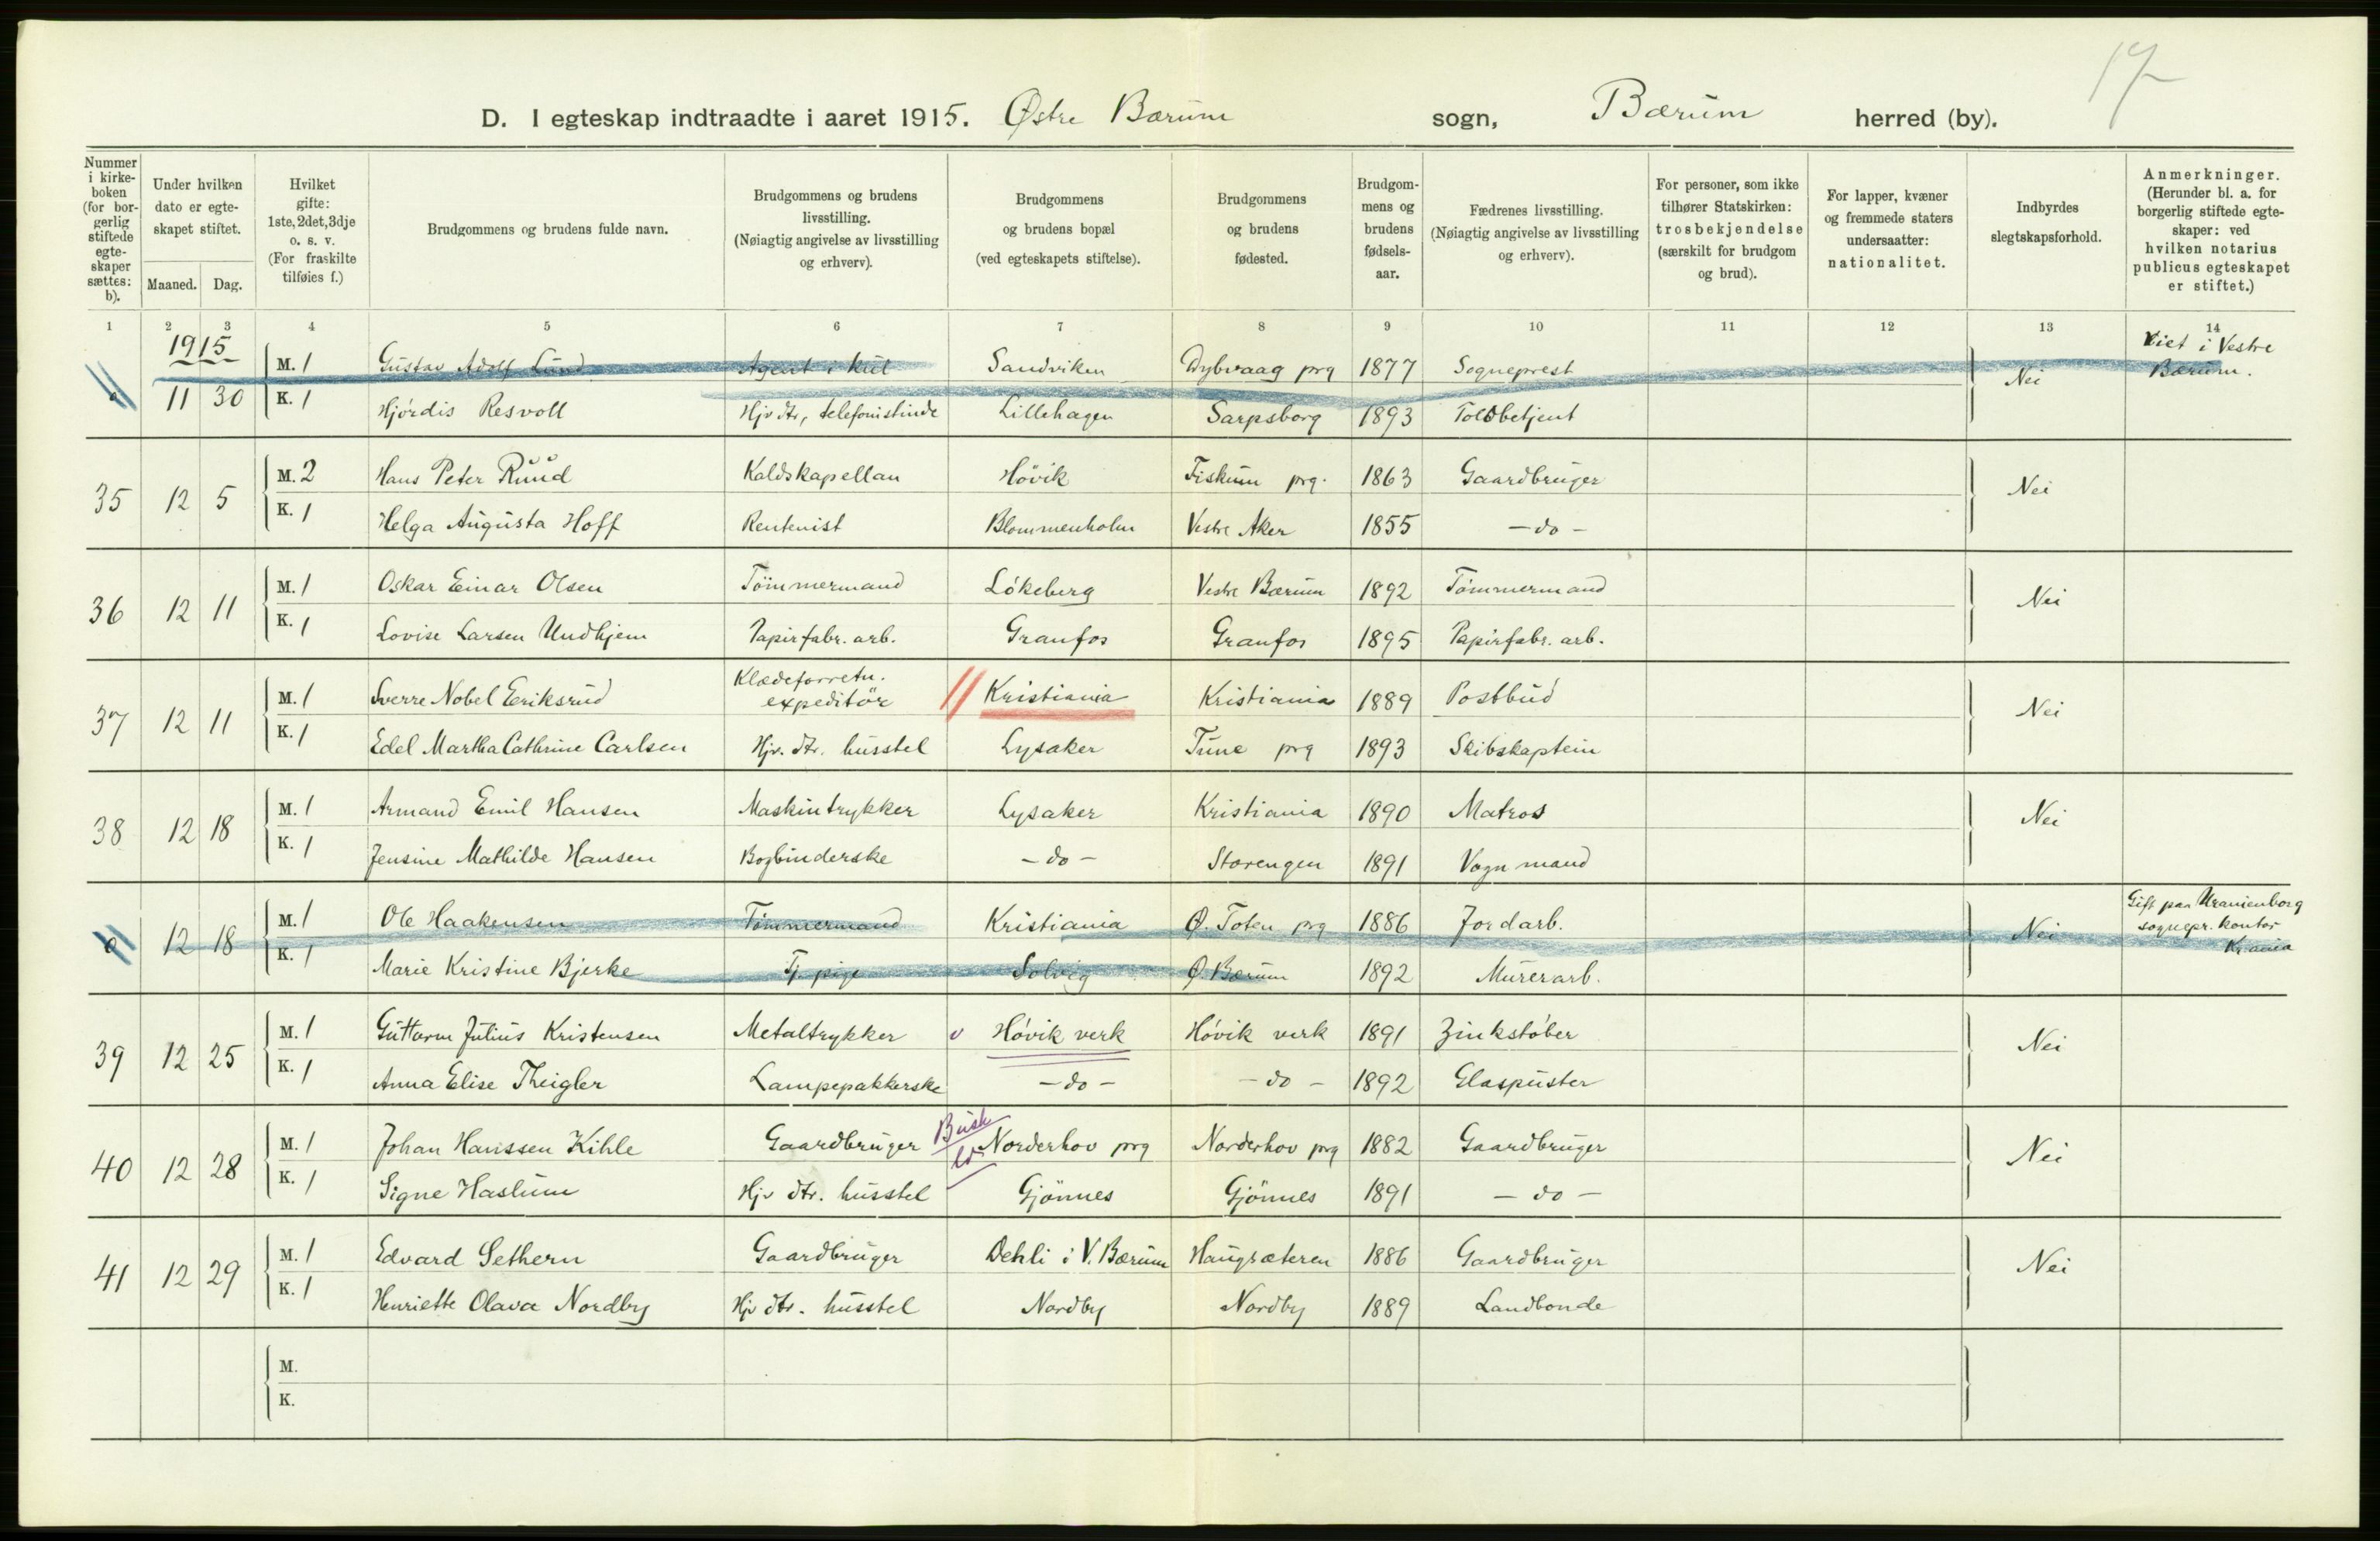 17
D. I egteskap indtraadte i aaret 1915. Østre Bærum sogn, Bærum herred (by).
Nummer i kirke-boken (for bor-gerlig stiftede egte-skaper sættes: b).
Under hvilken dato er egte-skapet stiftet.
Maaned. Dag.
Hvilket gifte: 1ste, 2det, 3dje o. s. v. (For fraskilte tilføies f.)
Brudgommens og brudens fulde navn.
Brudgommens og brudens livsstilling. (Nøiagtig angivelse av livsstilling og erhverv).
Brudgommens og brudens bopæl (ved egteskapets stiftelse).
Brudgommens og brudens fødested.
Brudgom-mens og brudens fødsels-aar.
Fædrenes livsstilling. (Nøiagtig angivelse av livsstilling og erhverv).
For personer, som ikke tilhører Statskirken: trosbekjendelse (særskilt for brudgom og brud).
For lapper, kvæner og fremmede staters undersaatter: nationalitet.
Indbyrdes slegtskapsforhold.
Anmerkninger. (Herunder bl. a. for borgerlig stiftede egte-skaper: ved hvilken notarius publicus egteskapet er stiftet.)
1 2 3 4 5 6 7 8 9 10 11 12 13 14
1915
M. 1 Gustav Adolf Lund Agent i kul Sandviken Dybvaag prg 1877 Sogneprest Nei Viet i Vestre Bærum.
11 30 K. 1 Hjördis Resvoll Hjv dtr, telefonistinde Lillehagen Sarpsborg 1893 Toldbetjent
35 12 5 M. 2 Hans Peter Ruud Kaldskapellan Hövik Fiskum prg. 1863 Gaardbruger Nei
K. 1 Helga Augusta Hoff Rentenist Blommenholm Vestre Aker 1855 - do -
36 12 11 M. 1 Oskar Einar Olsen Tömmermand Lökeberg Vestre Bærum 1892 Tömmermand Nei
K. 1 Lovise Larsen Undhjem Papirfabr. arb. Granfos Granfos 1895 Papirfabr. arb.
37 12 11 M. 1 Sverre Nobel Eeriksrud Klædeforretn. expeditör Kristiania Kristiania 1889 Postbud Nei
K. 1 Edel Martha Cathrine Carlsen Hjv. dtr. husstel Lysaker Tune prg 1893 Skibskaptein
38 12 18 M. 1 Armand Emil Hansen Maskintrykker Lysaker Kristiania 1890 Matros Nei
K. 1 Jensine Mathilde Hansen Bogbinderske - do - Storengen 1891 Vognmand
12 18 M. 1 Ole Haakensen Tömmermand Kristiania Ø. Toten prg 1886 Jordarb. Nei Gift paa Uranienborg sognepr. kontor Kr.ania
K. 1 Marie Kristine Bjerke Tj. pige Solvig Ø. Bærum 1892 Murerarb.
39 12 25 M. 1 Guttorm Julius Kristensen Metaltrykker v Hövik verk Hövik verk 1891 Zinkstöber Nei
K. 1 Anna Elise Theigler Lampepakkerske - do - - do - 1892 Glaspuster
40 12 28 M. 1 Johan Hanssen Kihle Gaardbruger Busk Norderhov prg Norderhov prg 1882 Gaardbruger Nei
K. 1 Signe Haslum Hjv dtr. husstel Gjönnes Gjönnes 1891 - do -
41 12 29 M. 1 Edvard Sethern Gaardbruger Dehli i V. Bærum Haugsæteren 1886 Gaardbruger Nei
K. 1 Henriette Olava Nordby Hjv dtr. husstel Nordby Nordby 1889 Landbonde
M.
K.